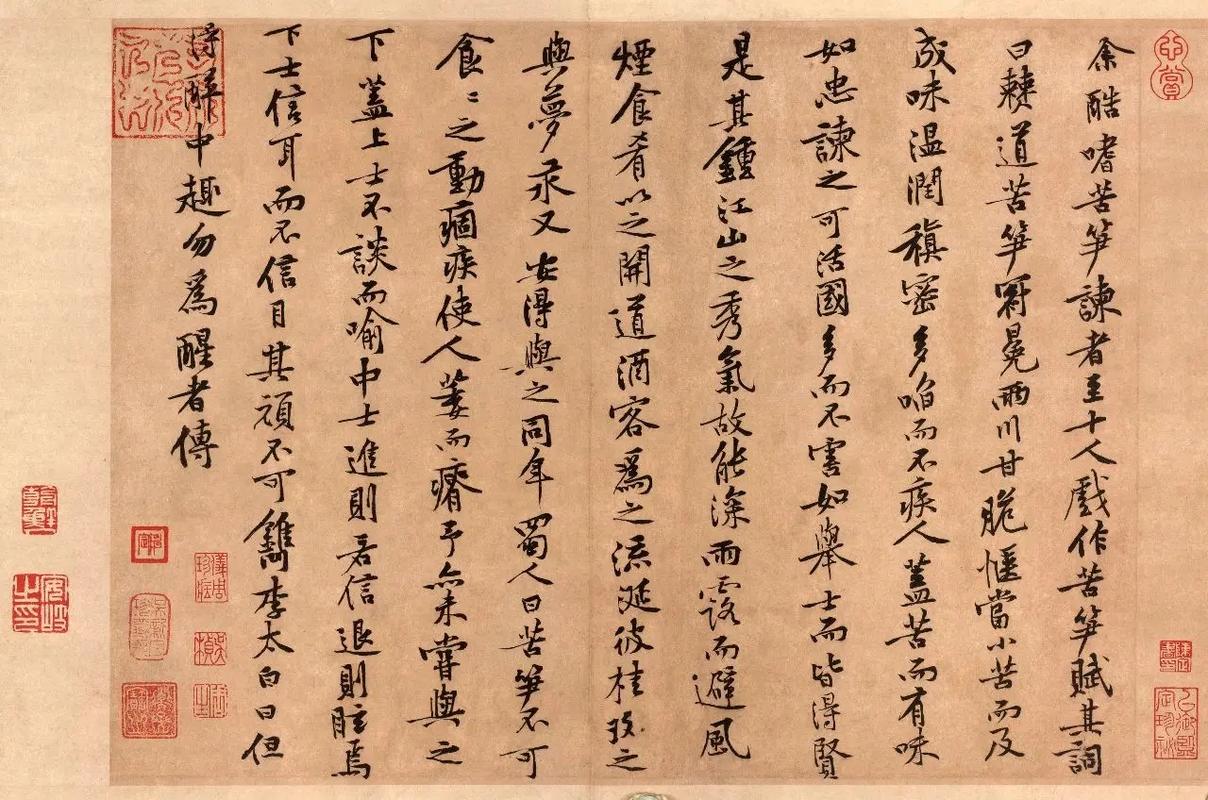 余酷嗜苦筍諫者至十人戲作苦筍賦其詞
曰僰道苦筍冠冕兩川甘脆愜當小苦而及
成味温潤稹密多啗而不疾人蓋苦而有味
如忠諫之可活國多而不害如舉士而皆得賢
是其鍾江山之秀氣故能深雨露而避風
煙食肴以之開道酒客爲之流涎彼桂玫之
與夢汞又安得與之同年蜀人曰苦筍不可
食〻之動痼疾使人萎而瘠予亦未嘗與之
下蓋上士不談而喻中士進則若信退則眩焉
下士信耳而不信目其頑不可鐫李太白曰但
得醉中趣勿爲醒者傳
安岐之印